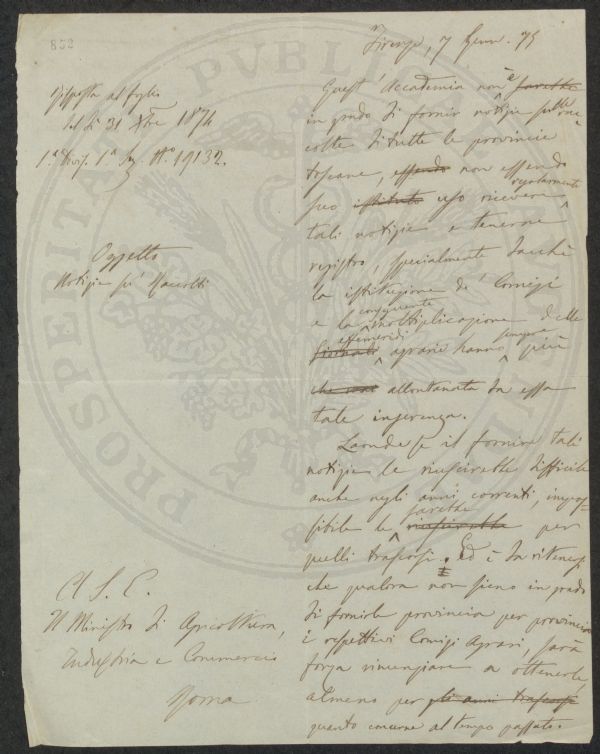 852
Firenze, 7 Genn. 75
Risposta al foglio
del dì 31 Xbre 1874
1ª Divis. 1ª Sez. Nº 19132.
Oggetto
Notizie su' Raccolti
Quest' Accademia non è sarebbe
in grado di fornir notizie sulle rac-
colte di tutte le provincie
toscane, essendo non essendo
suo istituto uso ricevere regolarmente
tali notizie e tenerne
registro, specialmente dacchè
la istituzione de' Comizi
e la conseguente moltiplicazione delle
giornali effemeridi agrarie hanno sempre più
che mai allontanata da essa
tale ingerenza.
Laonde se il fornire tali
notizie le riuscirebbe difficile
anche negli anni correnti, impos-
sibile le riuscirebbe sarebbe per
quelli trascorsi. Ed è da ritenersi
che qualora non sieno in grado
di fornirle provincia per provincia
i respettivi Comizi Agrari, sarà
forza rinunziare a ottenerle,
almeno per gli anni trascorsi
quanto concerne al tempo passato.
A S. E.
Il Ministro di Agricoltura,
Industria e Commercio
Roma
PROSPERITATI PVBLICAE